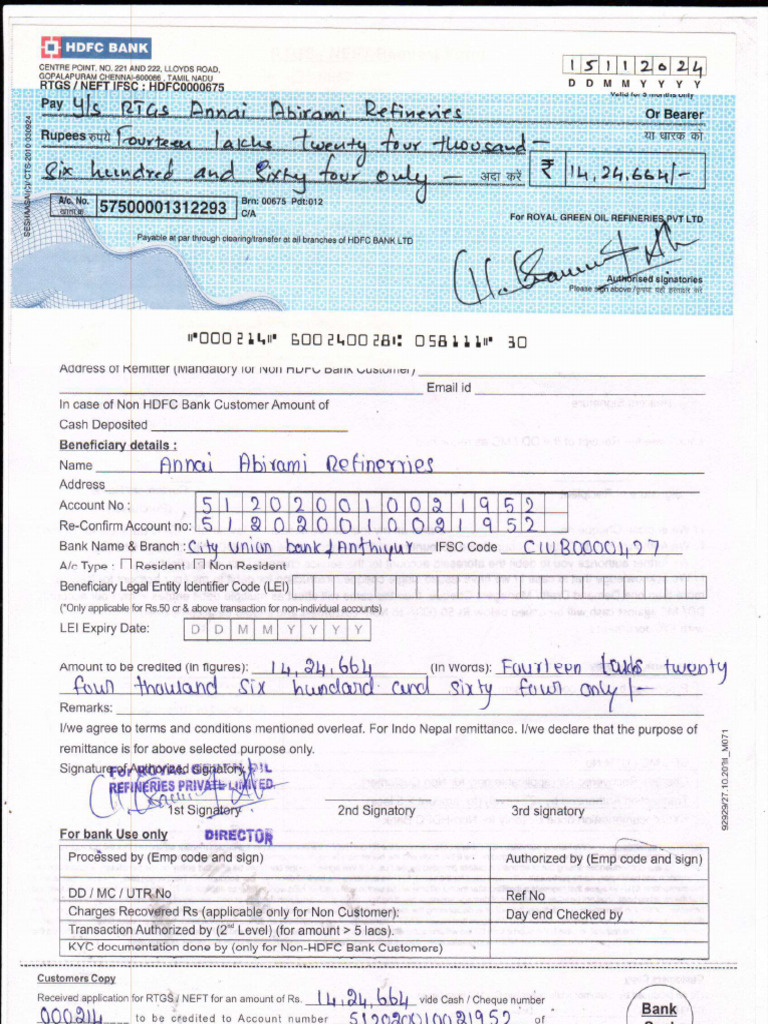 HDFC BANK
CENTRE POINT, NO. 221 AND 222, LLOYDS ROAD,
GOPALAPURAM CHENNAI-600086, TAMIL NADU
RTGS / NEFT IFSC : HDFC0000675
15112024
D D M M Y Y Y Y
Valid for 3 months only
Pay Y/s RTGS Annai Abirami Refineries Or Bearer
Rupees रुपये Fourteen lakhs twenty four thousand — या धारक को
Six hundred and Sixty four only — अदा करें ₹ 14,24,664/-
A/c. No. 57500001312293 Brn: 00675 Pdt:012
C/A
For ROYAL GREEN OIL REFINERIES PVT LTD
Payable at par through clearing/transfer at all branches of HDFC BANK LTD
Authorised signatories
Please sign above /
⑈000214⑈ 600240028⑆ 058111⑈ 30
Address of Remitter (Mandatory for Non HDFC Bank Customer)
Email id
In case of Non HDFC Bank Customer Amount of
Cash Deposited
Beneficiary details :
Name Annai Abirami Refinerries
Address
Account No : 512020010021952
Re-Confirm Account no: 512020010021952
Bank Name & Branch : City union bank / Anthiyur IFSC Code CIUB0000427
A/c Type : Resident Non Resident
Beneficiary Legal Entity Identifier Code (LEI)
(*Only applicable for Rs.50 cr & above transaction for non-individual accounts)
LEI Expiry Date: D D M M Y Y Y Y
Amount to be credited (in figures): 14,24,664 (in Words): Fourteen lakhs twenty
four thousand six hundard and sixty four only/-
Remarks:
I/we agree to terms and conditions mentioned overleaf. For Indo Nepal remittance. I/we declare that the purpose of
remittance is for above selected purpose only.
Signature of Authorized Signatory
For ROYAL GREEN OIL
REFINERIES PRIVATE LIMITED.
1st Signatory 2nd Signatory 3rd signatory
DIRECTOR
For bank Use only
Processed by (Emp code and sign) Authorized by (Emp code and sign)
DD / MC / UTR No Ref No
Charges Recovered Rs (applicable only for Non Customer): Day end Checked by
Transaction Authorized by (2nd Level) (for amount > 5 lacs).
KYC documentation done by (only for Non-HDFC Bank Customers)
Customers Copy
Received application for RTGS / NEFT for an amount of Rs. 14,24,664 vide Cash / Cheque number
000214 to be credited to Account number 512020010021952 of
Bank